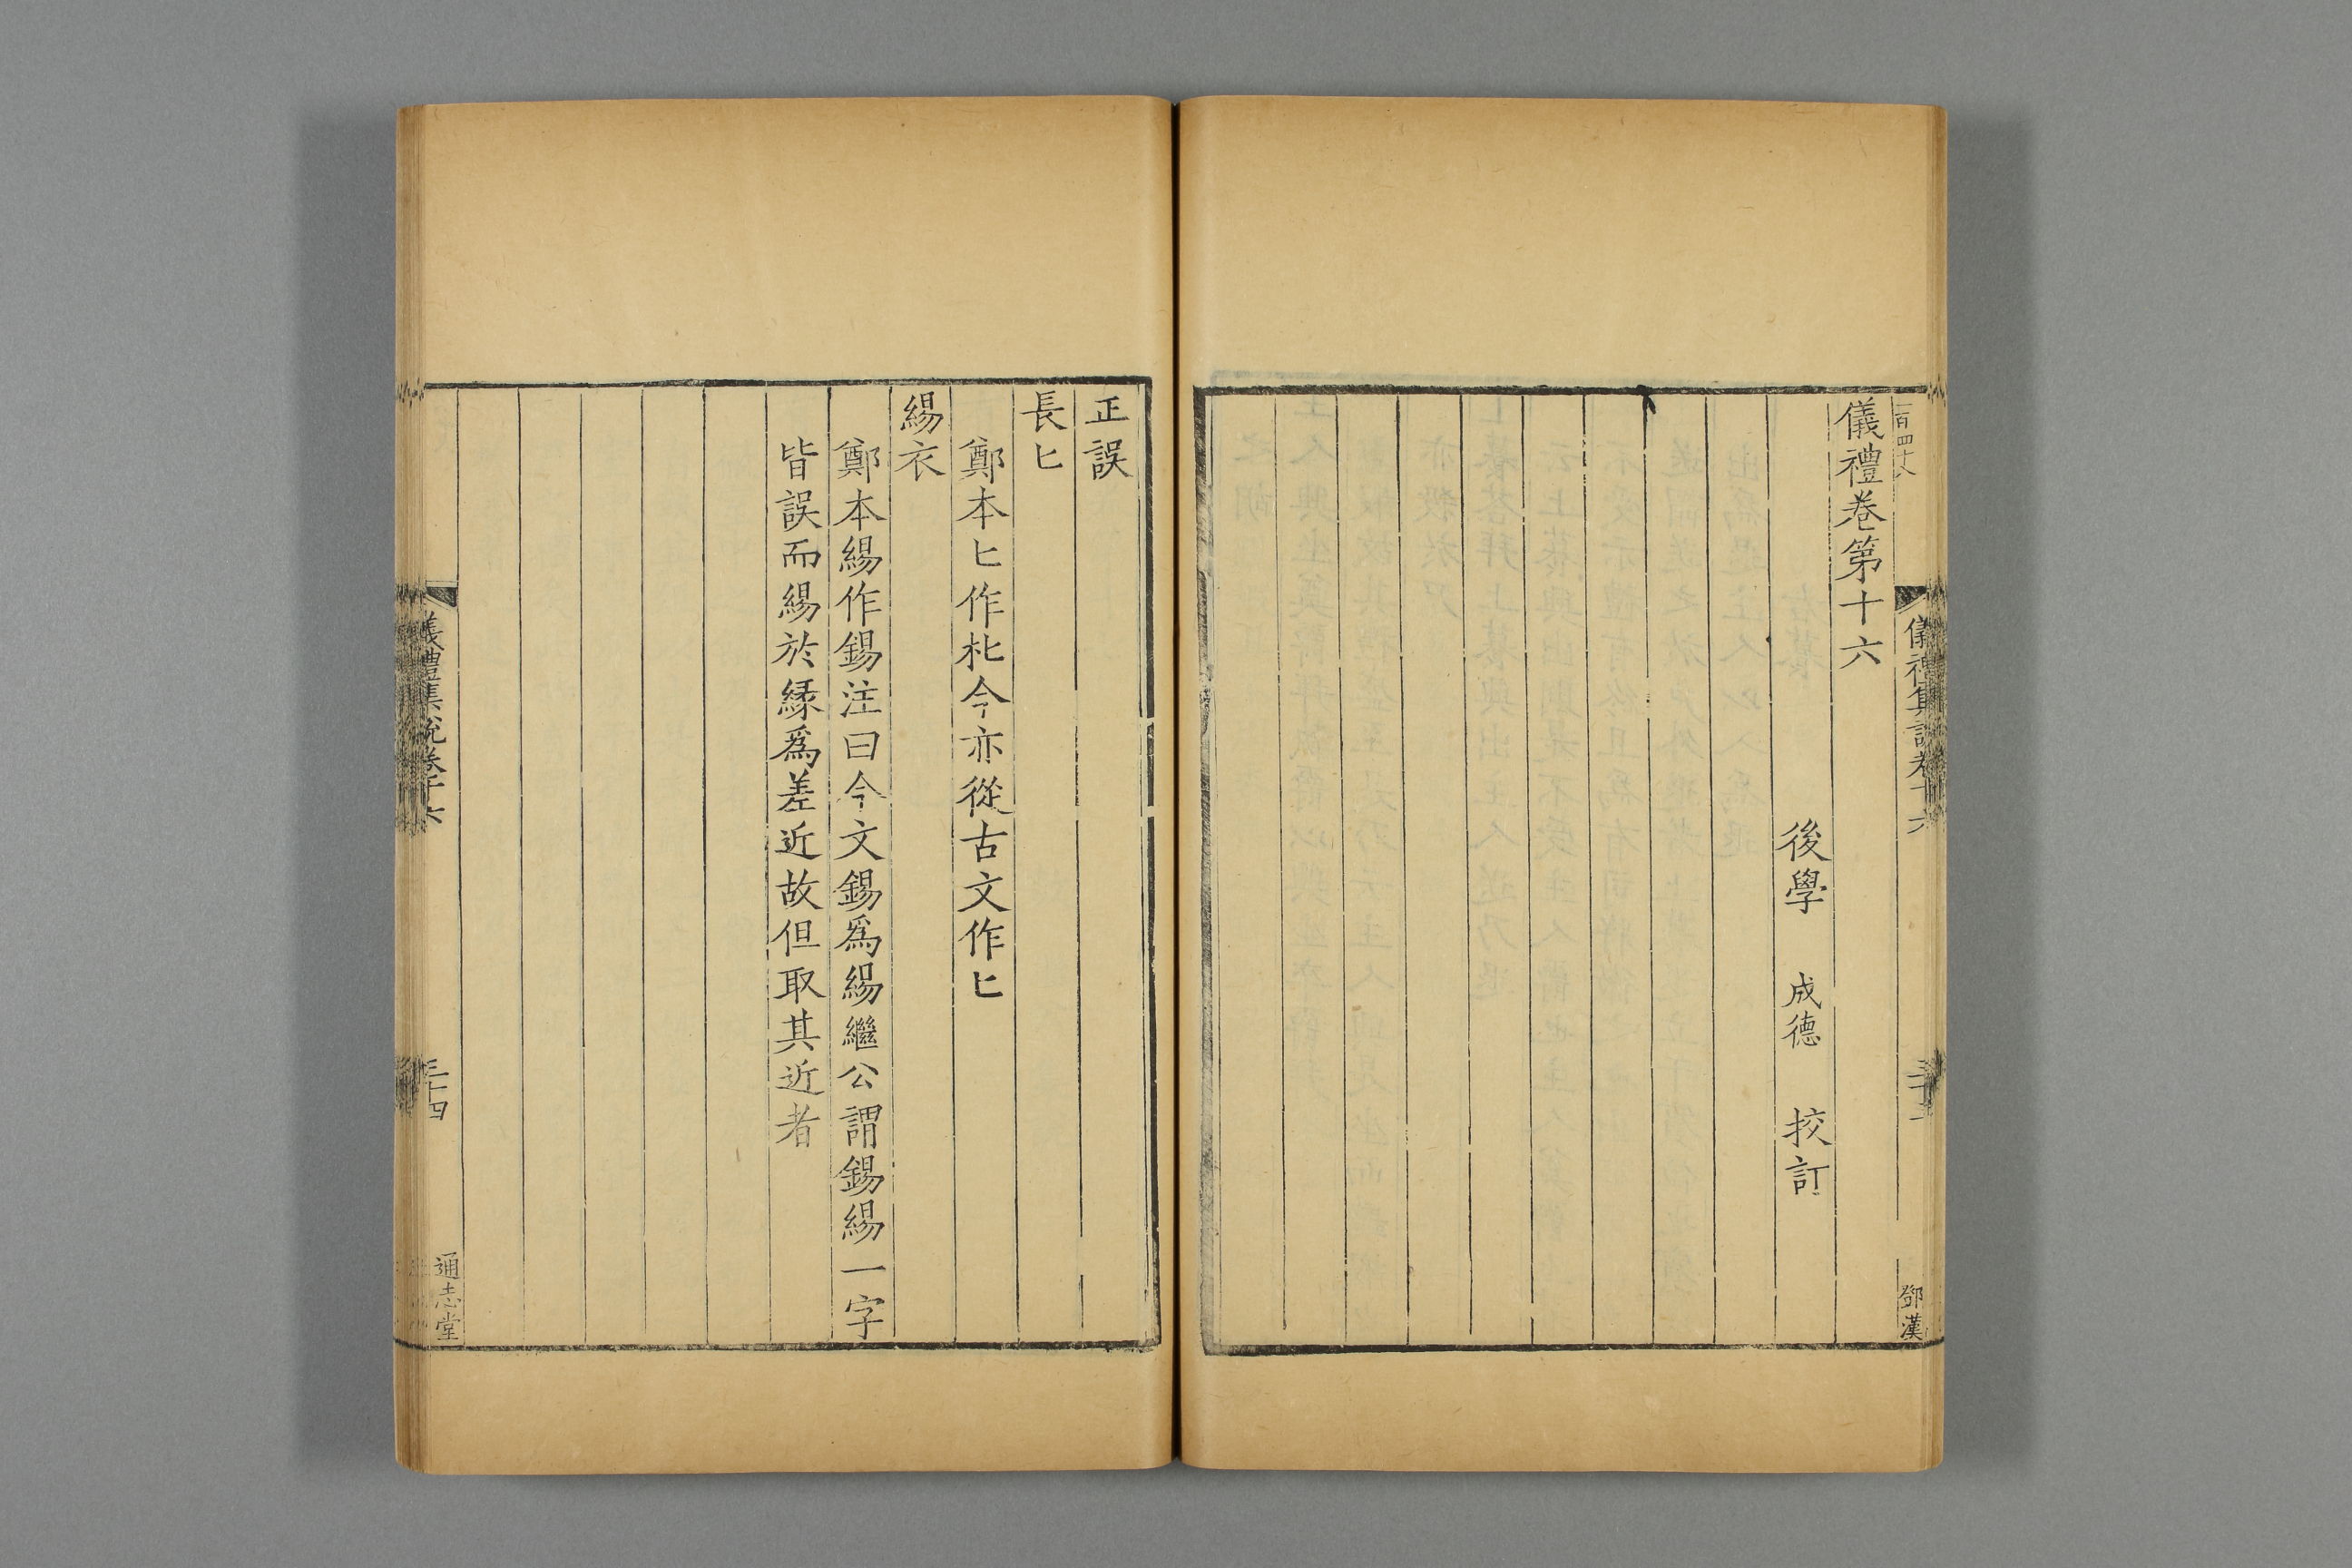 一百四十八
儀禮集說卷十六
鄧漢
儀禮卷第十六
後學 成德 挍訂
正誤
長匕
鄭本匕作朼今亦從古文作匕
緆衣
鄭本緆作錫注曰今文錫爲緆繼公謂錫緆一字
皆誤而緆於緣爲差近故但取其近者
儀禮集說卷十六
三十四
通志堂